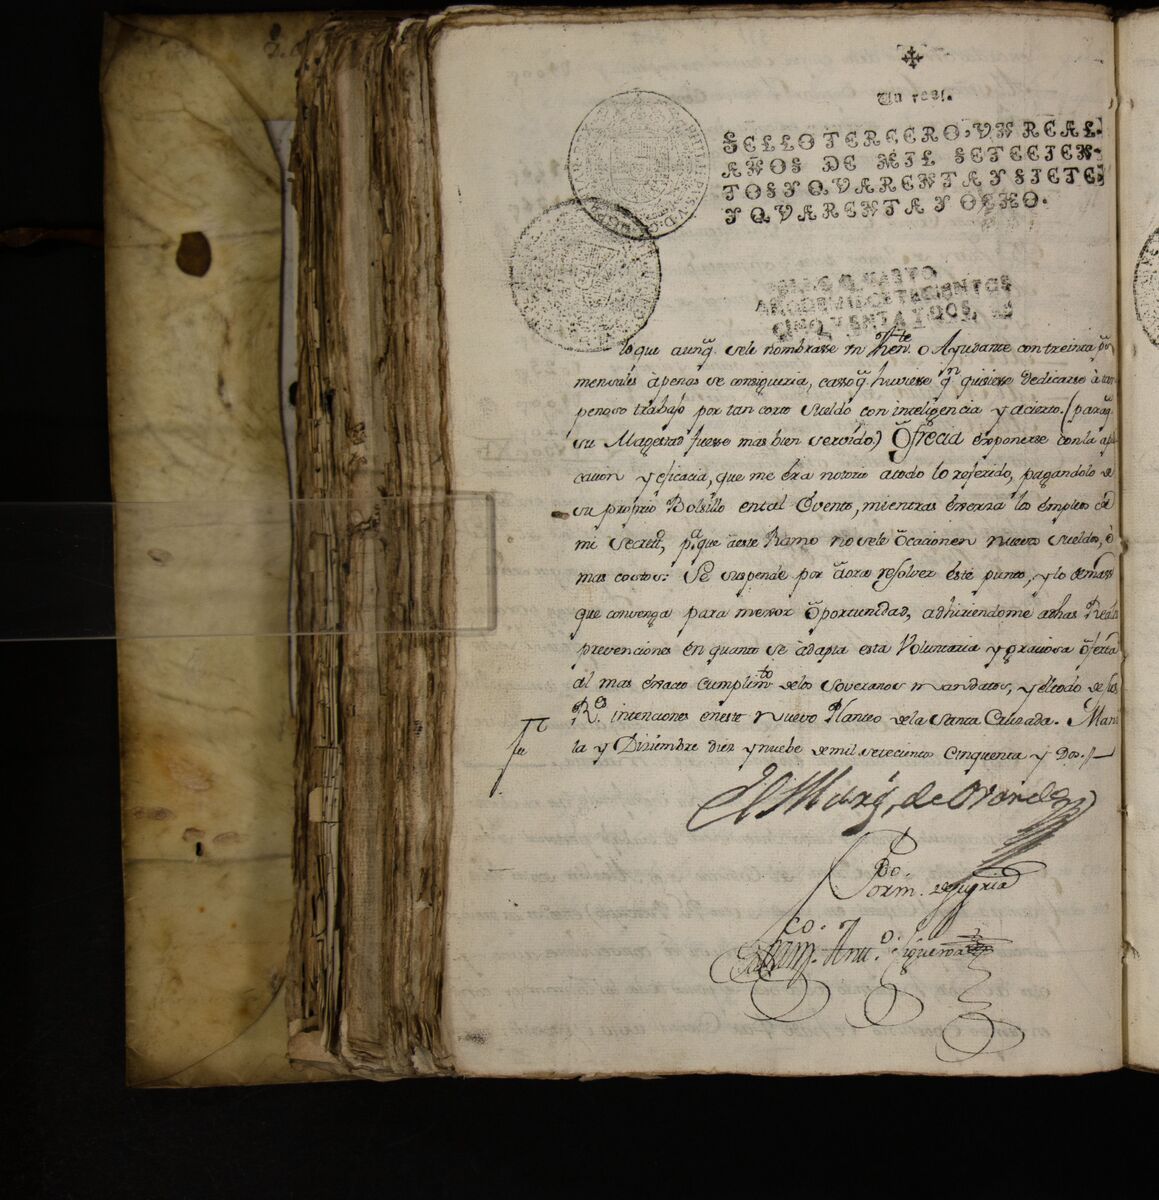 Un real.
SELLO TERCERO, VN REAL,
AÑOS DE MIL SETECIEN-
TOS Y QVARENTA Y SIETE,
Y QVARENTA Y OCHO.
AÑOS DE MIL SETECIENTOS
CINQVENTA I DOS
lo que aunq̃. sele nombrasse un Then.te o Ayudante con treinta p.s
mensales àpenas se consiguiria, casso q̃. huviesse q.n quisiesse dedicarse à tan
penoso trabajo por tan corto Sueldo con inteligencia y acierto. (para q̃.
su Magestad fuesse mas bien servido) Ofrecia exponerse con la apli
cacion y eficacia, que me èra notorio atodo lo referido, pagandolo de
su proprio Bolsillo en tal Evento, mientras exersia los empleos de
mi Secret.a, p.a que àeste Ramo no sele òcacionen nuevo sueldos, ò
mas costos: Se suspende por àora resolver este punto, y lo demas
que convenga para menor òportunidad, adhiriendome adhas Real.s
prevenciones en quanto se àdapta esta Voluntaria y graciosa òferta
àl mas èxacto cumplim.to delos Soveranos mandatos, y del todo de las
R.s intenciones eneste nuevo Planteo de la Santa Cruzada. Mani
la y Diziembre diez y nuebe de mil setecientos Cinquenta y Dos.
El Marq̃. de Ovando
Ant.o Figueroa